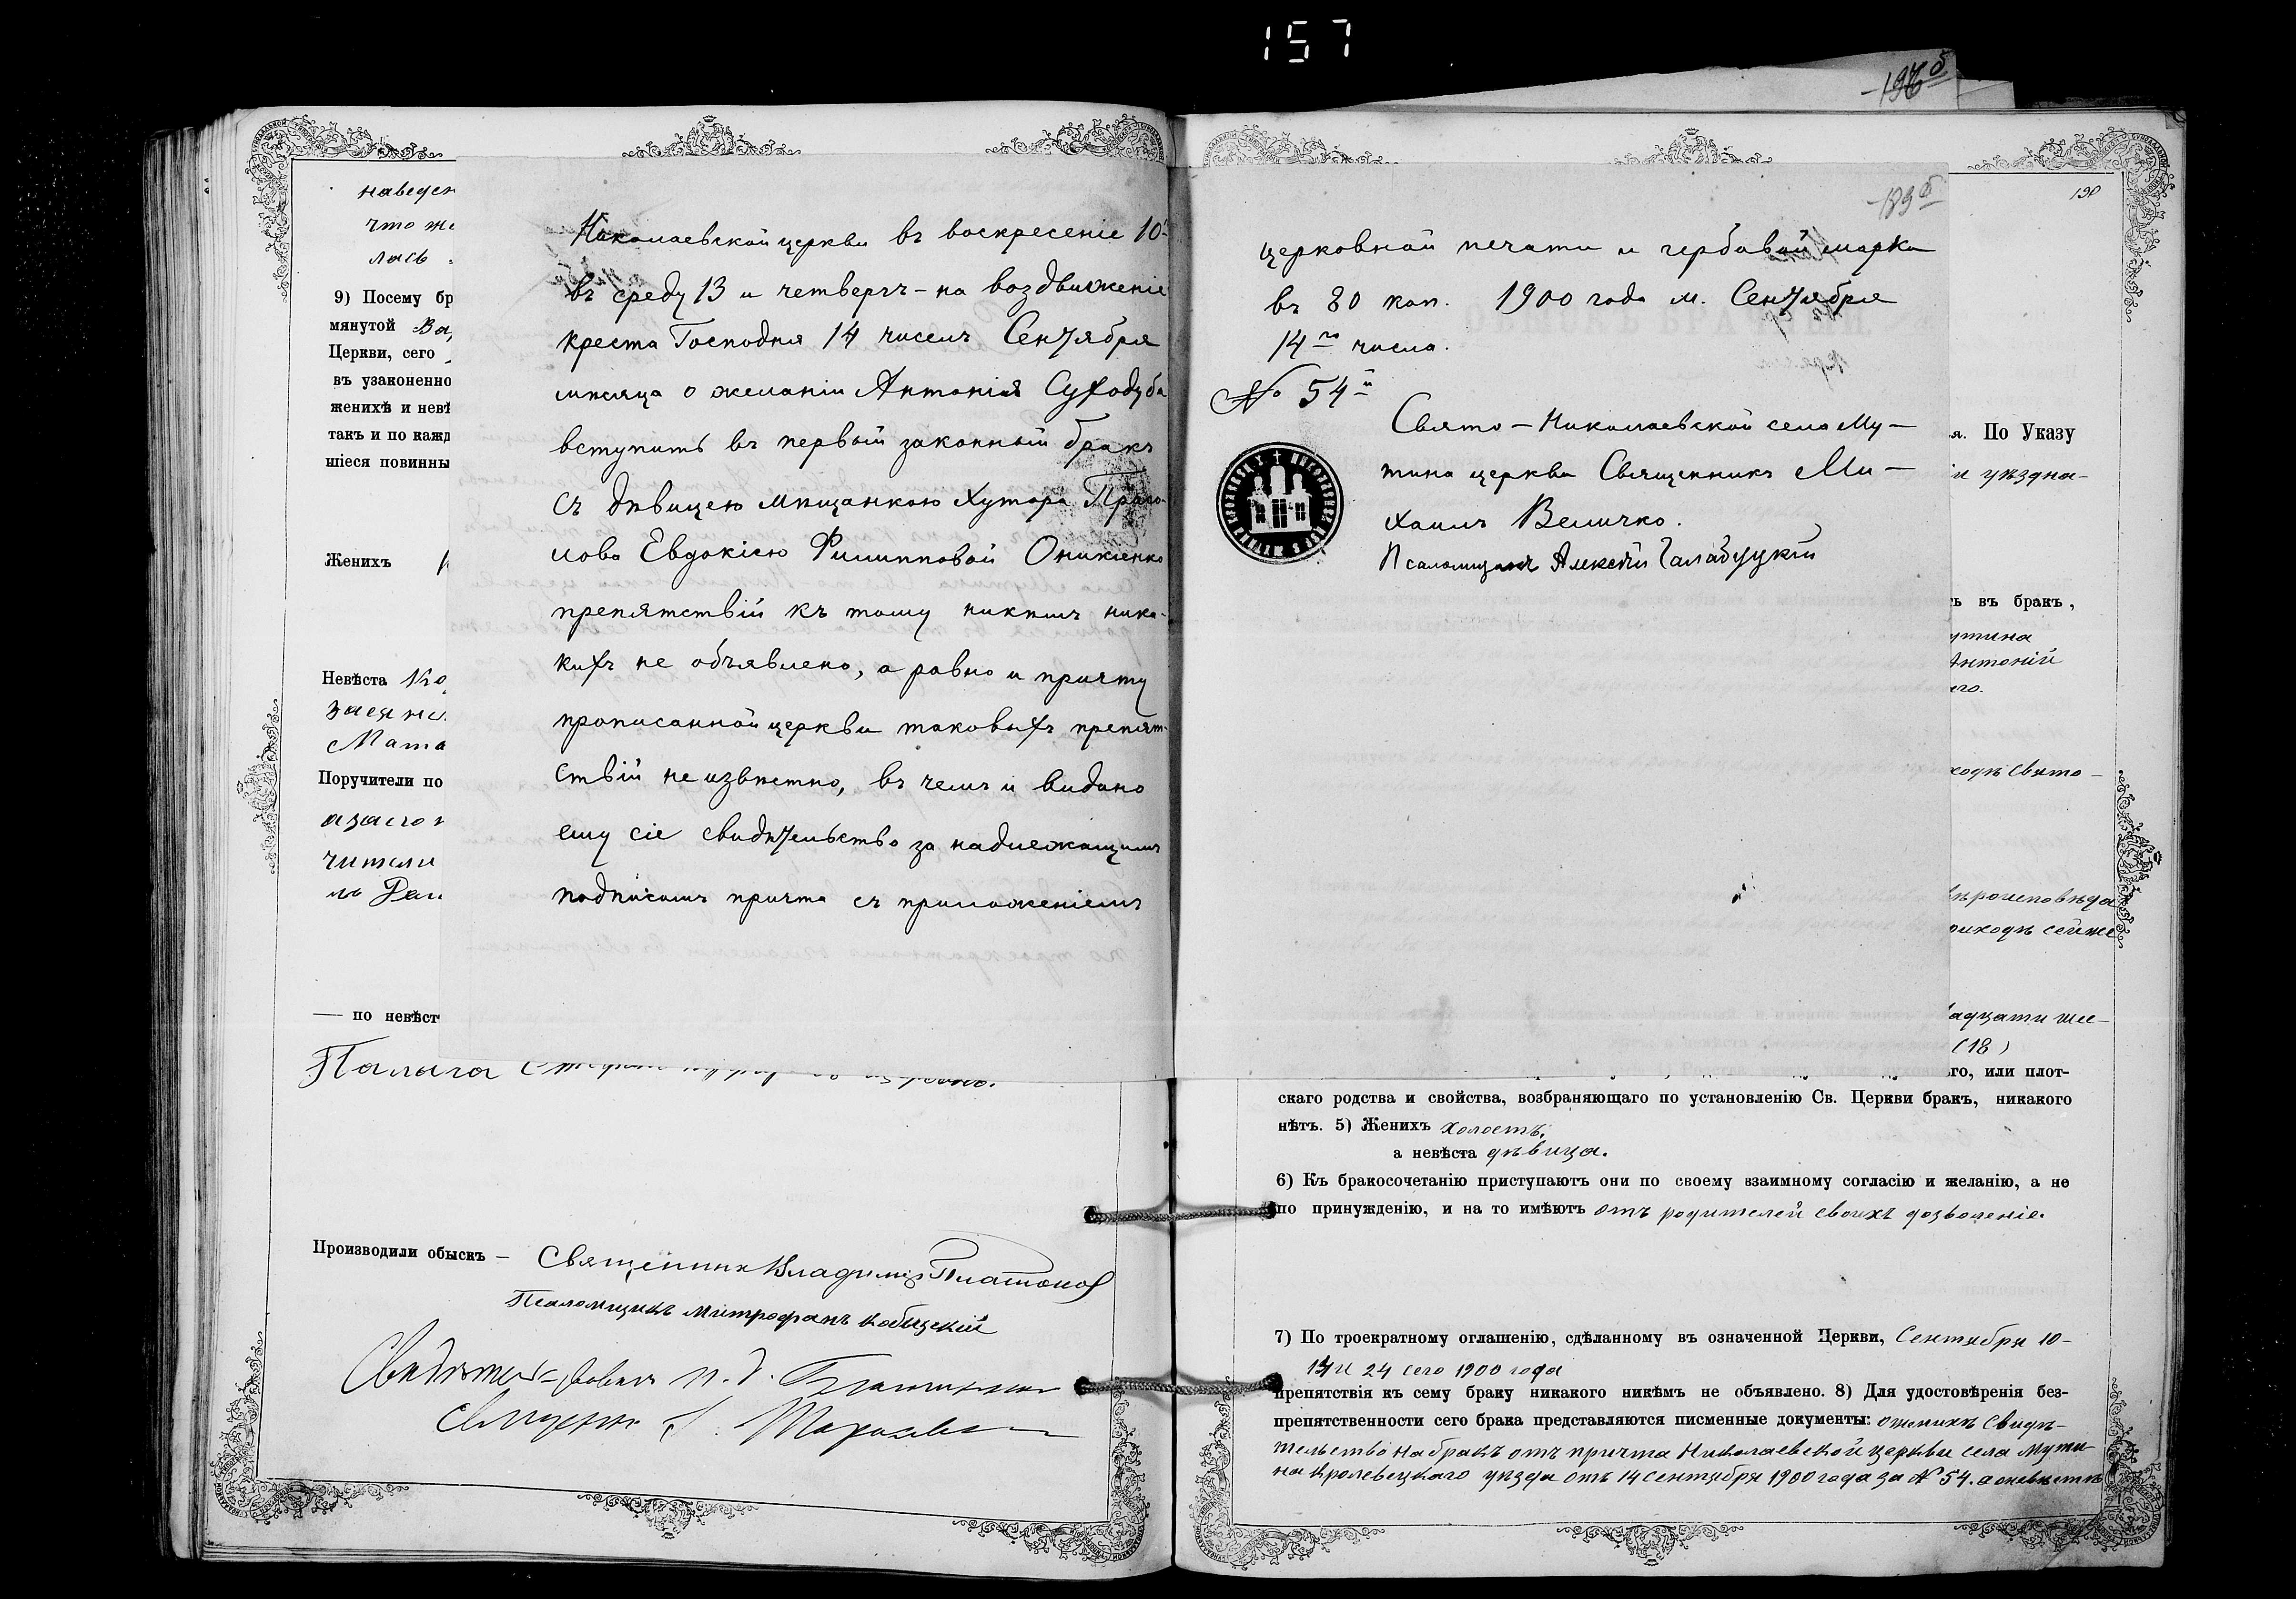 157
наведен
что же
лась
9) Посему бр
мянутой Ва
Церкви, сего
въ узаконенно
женихѣ и невѣ
такъ и по кажд
шіеся повинны
Женихъ
Невѣста
Мата
Поручители по
чители
— по невѣст
Николаевской церкви въ воскресеніе 10-
въ среду 13 и четвергъ - на воздвиженіе
креста Господня 14 чиселъ Сентября
мѣсяца о желаніи Антонія Суходуба
вступить въ первый законный бракъ
съ дѣвицею мѣщанкою Хутора Прасо-
лова Евдокіею Филипповой Оникіенко
препятствій къ тому никѣмъ ника-
кихъ не объявлено, а равно и причту
прописанной церкви таковыхъ препят-
ствій не извѣстно, въ чемъ и видано
ему сіе свидѣтельство за надлежащимъ
подписомъ причта съ приложеніемъ
Производили обыскъ — Священник Владимір Платонов
Псаломщикъ Митрофанъ Кобицскій
139б
церковной печати и гербовой марки
въ 80 коп. 1900 года м. Сентября
14го числа.
№ 54й
Свято-Николаевской села Му-
тина церкви Священникъ Ми-
хаилъ Величко.
Псаломщикъ Алексѣй
я. По Указу
и уѣздна-
ь въ бракъ,
утина
Антоній
его.
ходѣ Свято-
вѣроисповѣда
риходѣ сейже
адцати ше-
(18)
го, или плот-
скаго родства и свойства, возбраняющаго по установленію Св. Церкви бракъ, никакого
нѣтъ. 5) Женихъ холостъ,
а невѣста дѣвица.
6) Къ бракосочетанію приступаютъ они по своему взаимному согласію и желанію, а не
по принужденію, и на то имѣютъ отъ родителей своихъ дозволеніе.
7) По троекратному оглашенію, сдѣланному въ означенной Церкви, Сентября 10-
14 и 24 сего 1900 года
препятствія къ сему браку никакого никѣмъ не объявлено. 8) Для удостовѣренія без-
препятственности сего брака представляются писменные документы: о женихѣ Свидѣ-
тельство на бракъ отъ причта Николаевской церкви села Мути-
на Кролевецкаго уѣзда отъ 14 Сентября 1900 года за № 54. а о невѣстѣ